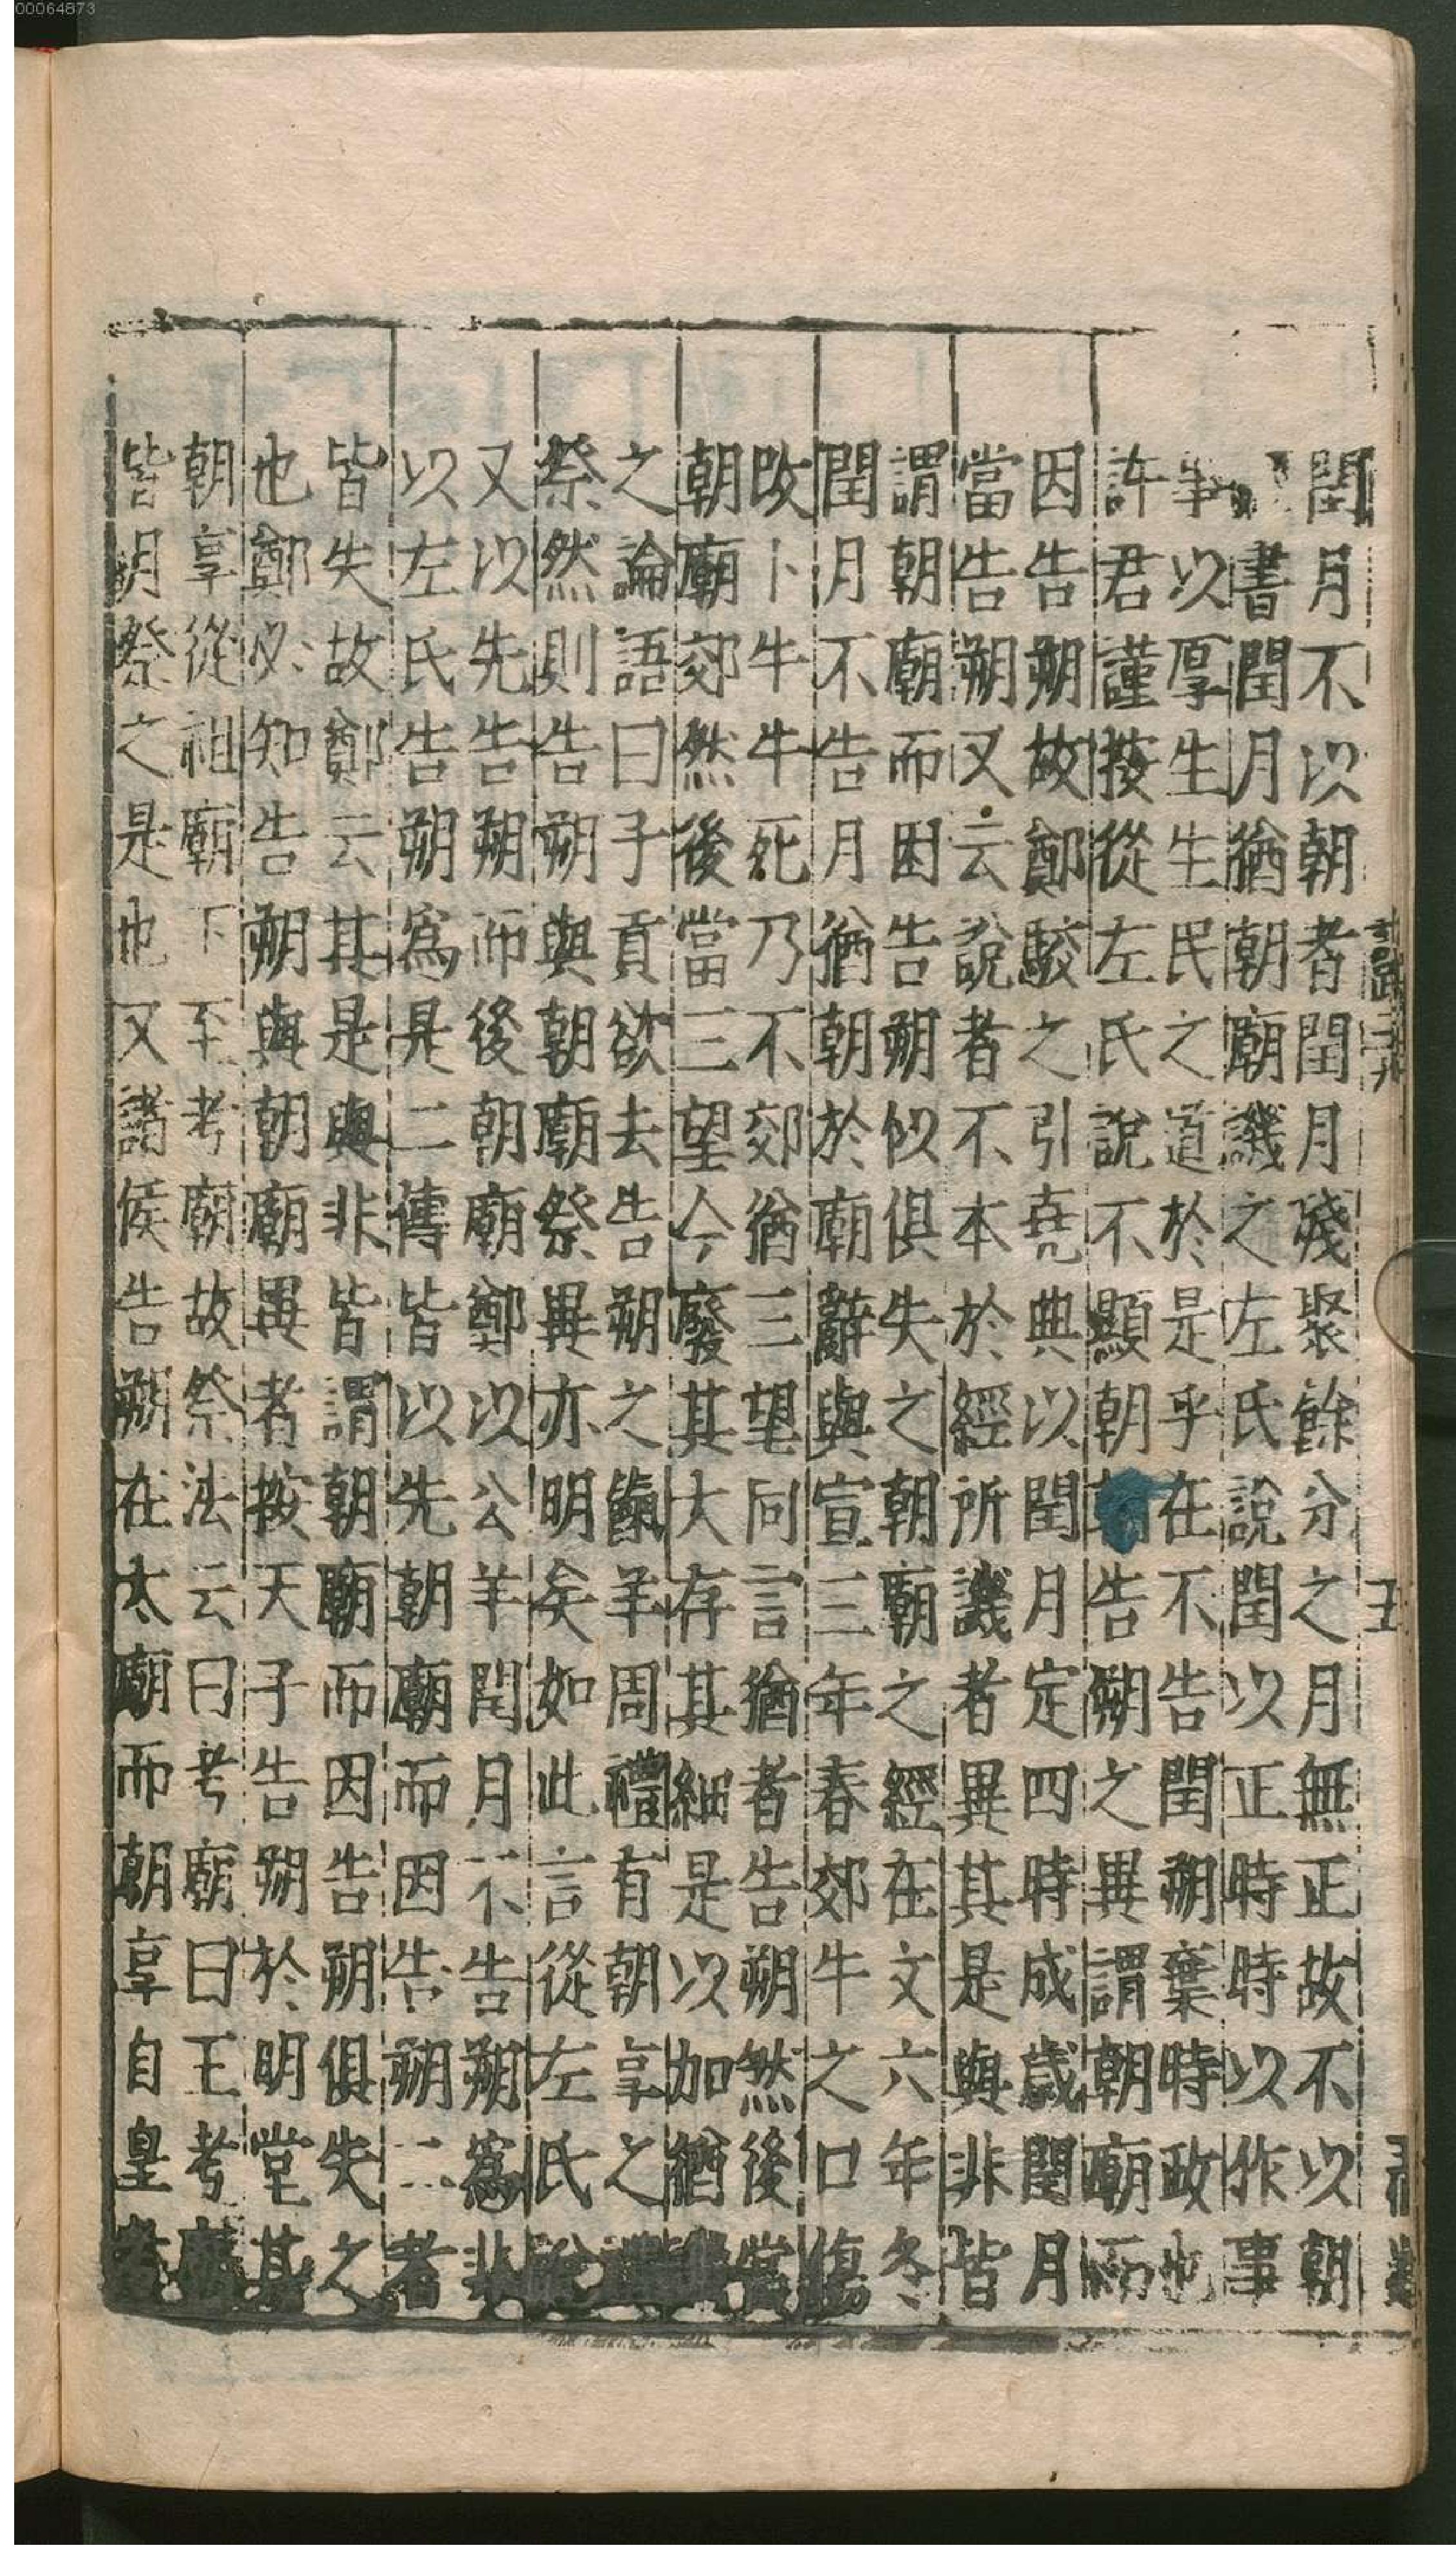 00064873
閏月不以朝者閏月殘聚餘分之月無正故不以朝
書閏月猶朝廟譏之左氏說閏以正時時以作事
事以厚生生民之道於是乎在不告閏朔棄時政也
許君謹按從左氏說不顯朝告朔之異謂朝廟而
因告朔故鄭駮之引堯典以閏月定四時成歲閏月
當告朔又云說者不本於經所譏者異其是與非皆
謂朝廟而因告朔似俱失之朝廟之經在文六年冬
閏月不告月猶朝於廟辭與宣三年春郊牛之口傷
改卜牛牛死乃不郊猶三望同言猶者告朔然後當
朝廟郊然後當三望今廢其大存其細是以加猶
之論語曰子貢欲去告朔之餼羊周禮有朝享之禮
祭然則告朔與朝廟祭異亦明矣如此言從左氏說
又以先告朔而後朝廟鄭以公羊閏月不告朔爲非
以左氏告朔爲是二傳皆以先朝廟而因告朔二者
皆失故鄭云其是與非皆謂朝廟而因告朔俱失之
也鄭必知告朔與朝廟異者按天子告朔於明堂其
朝享從祖廟下至考廟故祭法云曰考廟曰王考廟
皆月祭之是也又諸侯告朔在太廟而朝享自皇考
五